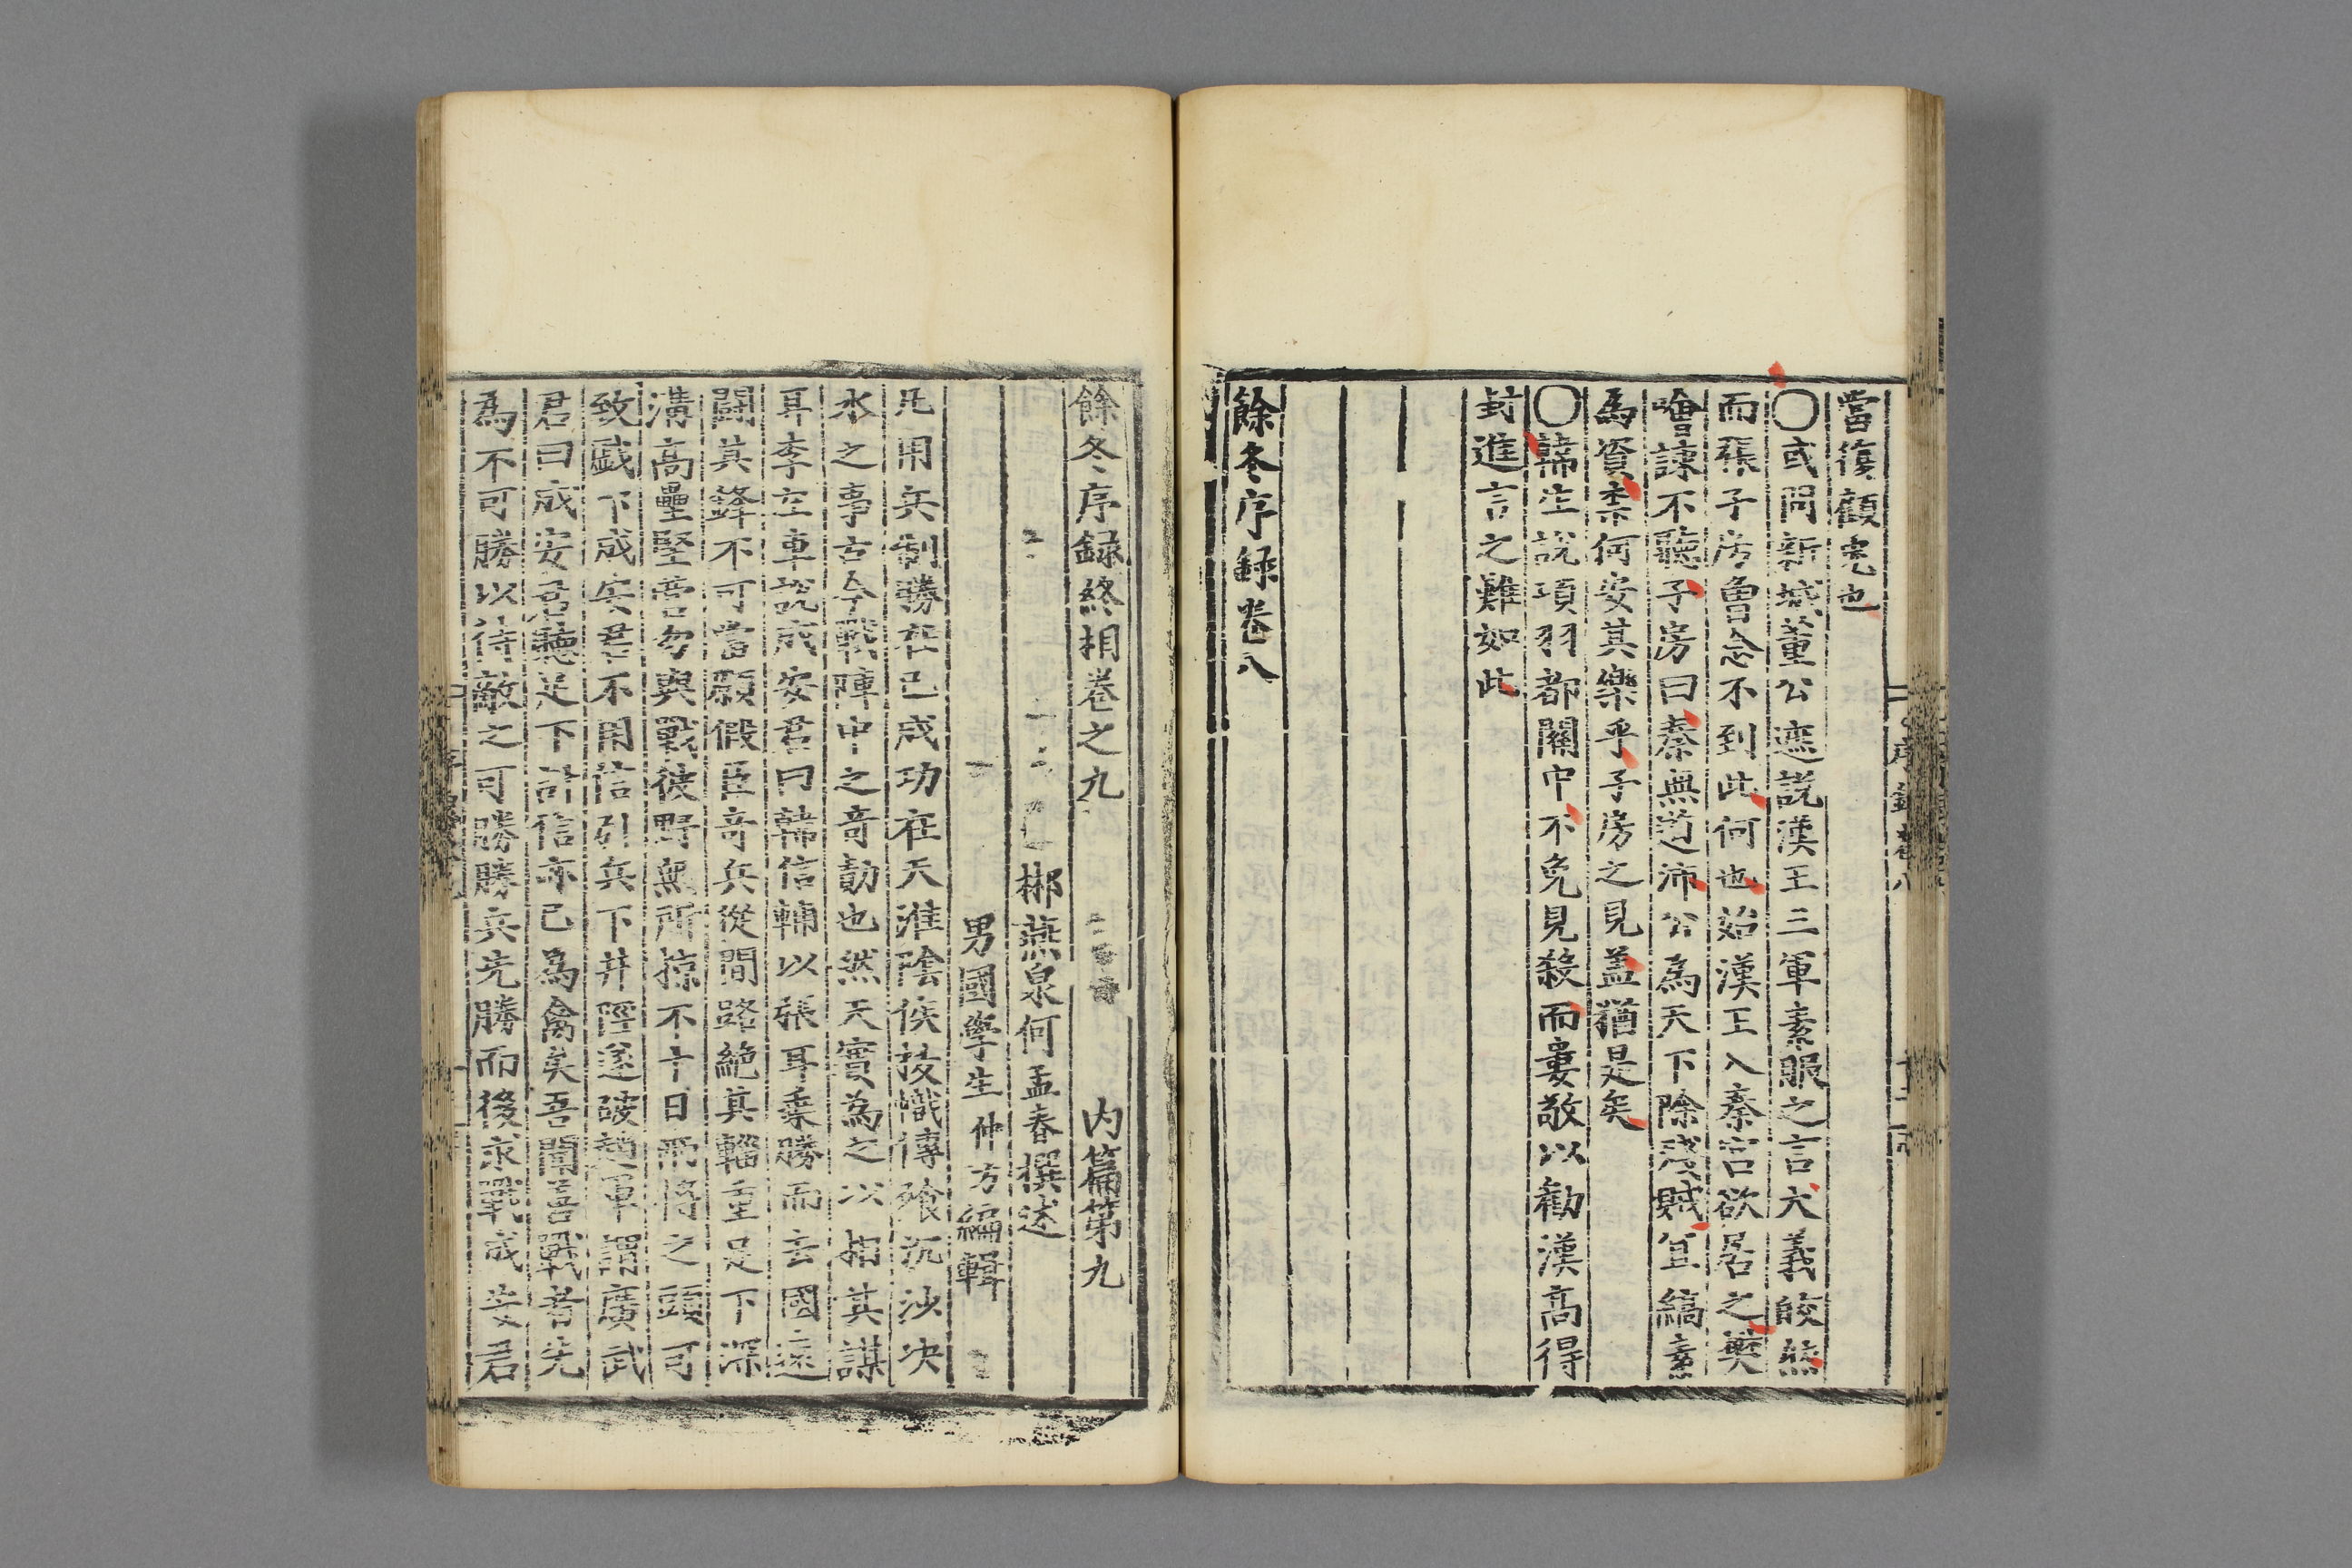 當復顧兎也
〇或問新城董公遮說漢王三軍素服之言大義皎然
而張子房曾念不到此何也始漢王入秦宫欲居之樊
噲諫不聽子房曰秦無道沛公為天下除殘賊宜縞素
為資柰何安其樂乎子房之見盖猶是矣
〇韓生說項羽都關中不免見殺而婁敬以勸漢高得
封進言之難如此
餘冬序録卷八
餘冬序録終相卷之九 内篇第九
郴燕泉何孟春撰述
男國學生仲方編輯
凡用兵制勝在已成功在天淮陰侯拔幟傳飱沉沙决
水之事古今戰陣中之竒勣也然天實為之以拙其謀
耳李左車說成安君曰韓信輔以張耳乗勝而去國遠
闘其鋒不可當願假臣竒兵從間路絶其輜重足下深
溝高壘堅營勿與戰彼野無所掠不十日而將之頭可
致戯下成安君不用信引兵下井陘遂破趙軍謂廣武
君曰成安君聽足下計信亦已為禽矣吾聞善戰者先
為不可勝以待敵之可勝勝兵先勝而後求戰成安君